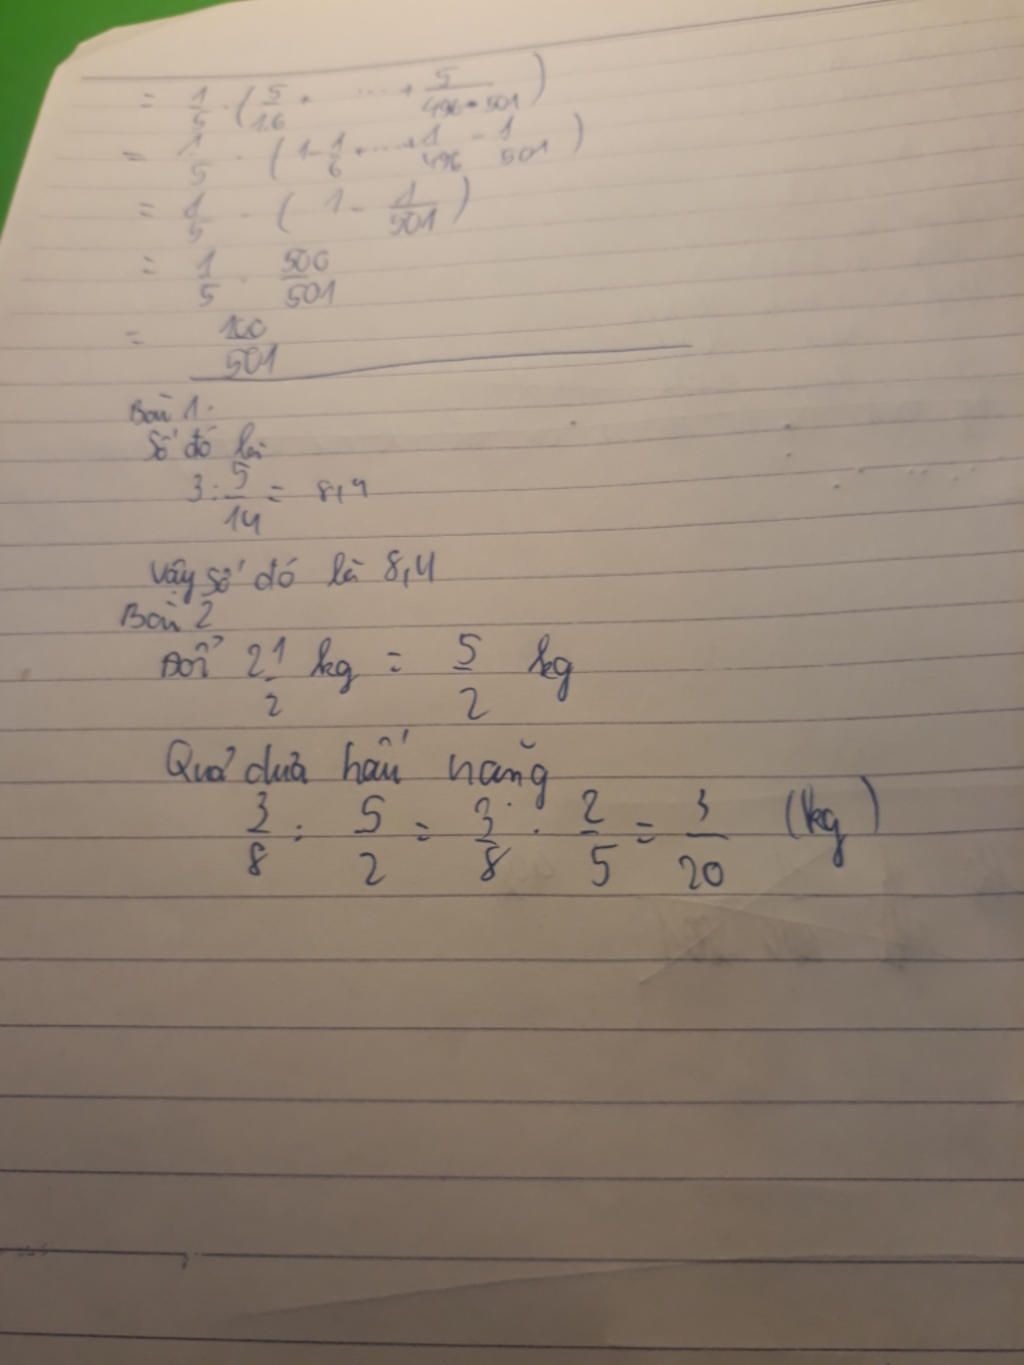 = 1/5 . ( 5/1.6 + ... + 5/496.501 )
= 1/5 . ( 1 - 1/6 + ... + 1/496 - 1/501 )
= 1/5 . ( 1 - 1/501 )
= 1/5 . 500/501
= 100/501
Bài 1.
Số đó là
3 : 5/14 = 8,4
Vậy số đó là 8,4
Bài 2
Đổi 2 1/2 kg = 5/2 kg
Quả dưa hấu nặng
3/8 : 5/2 = 3/8 . 2/5 = 3/20 (kg)